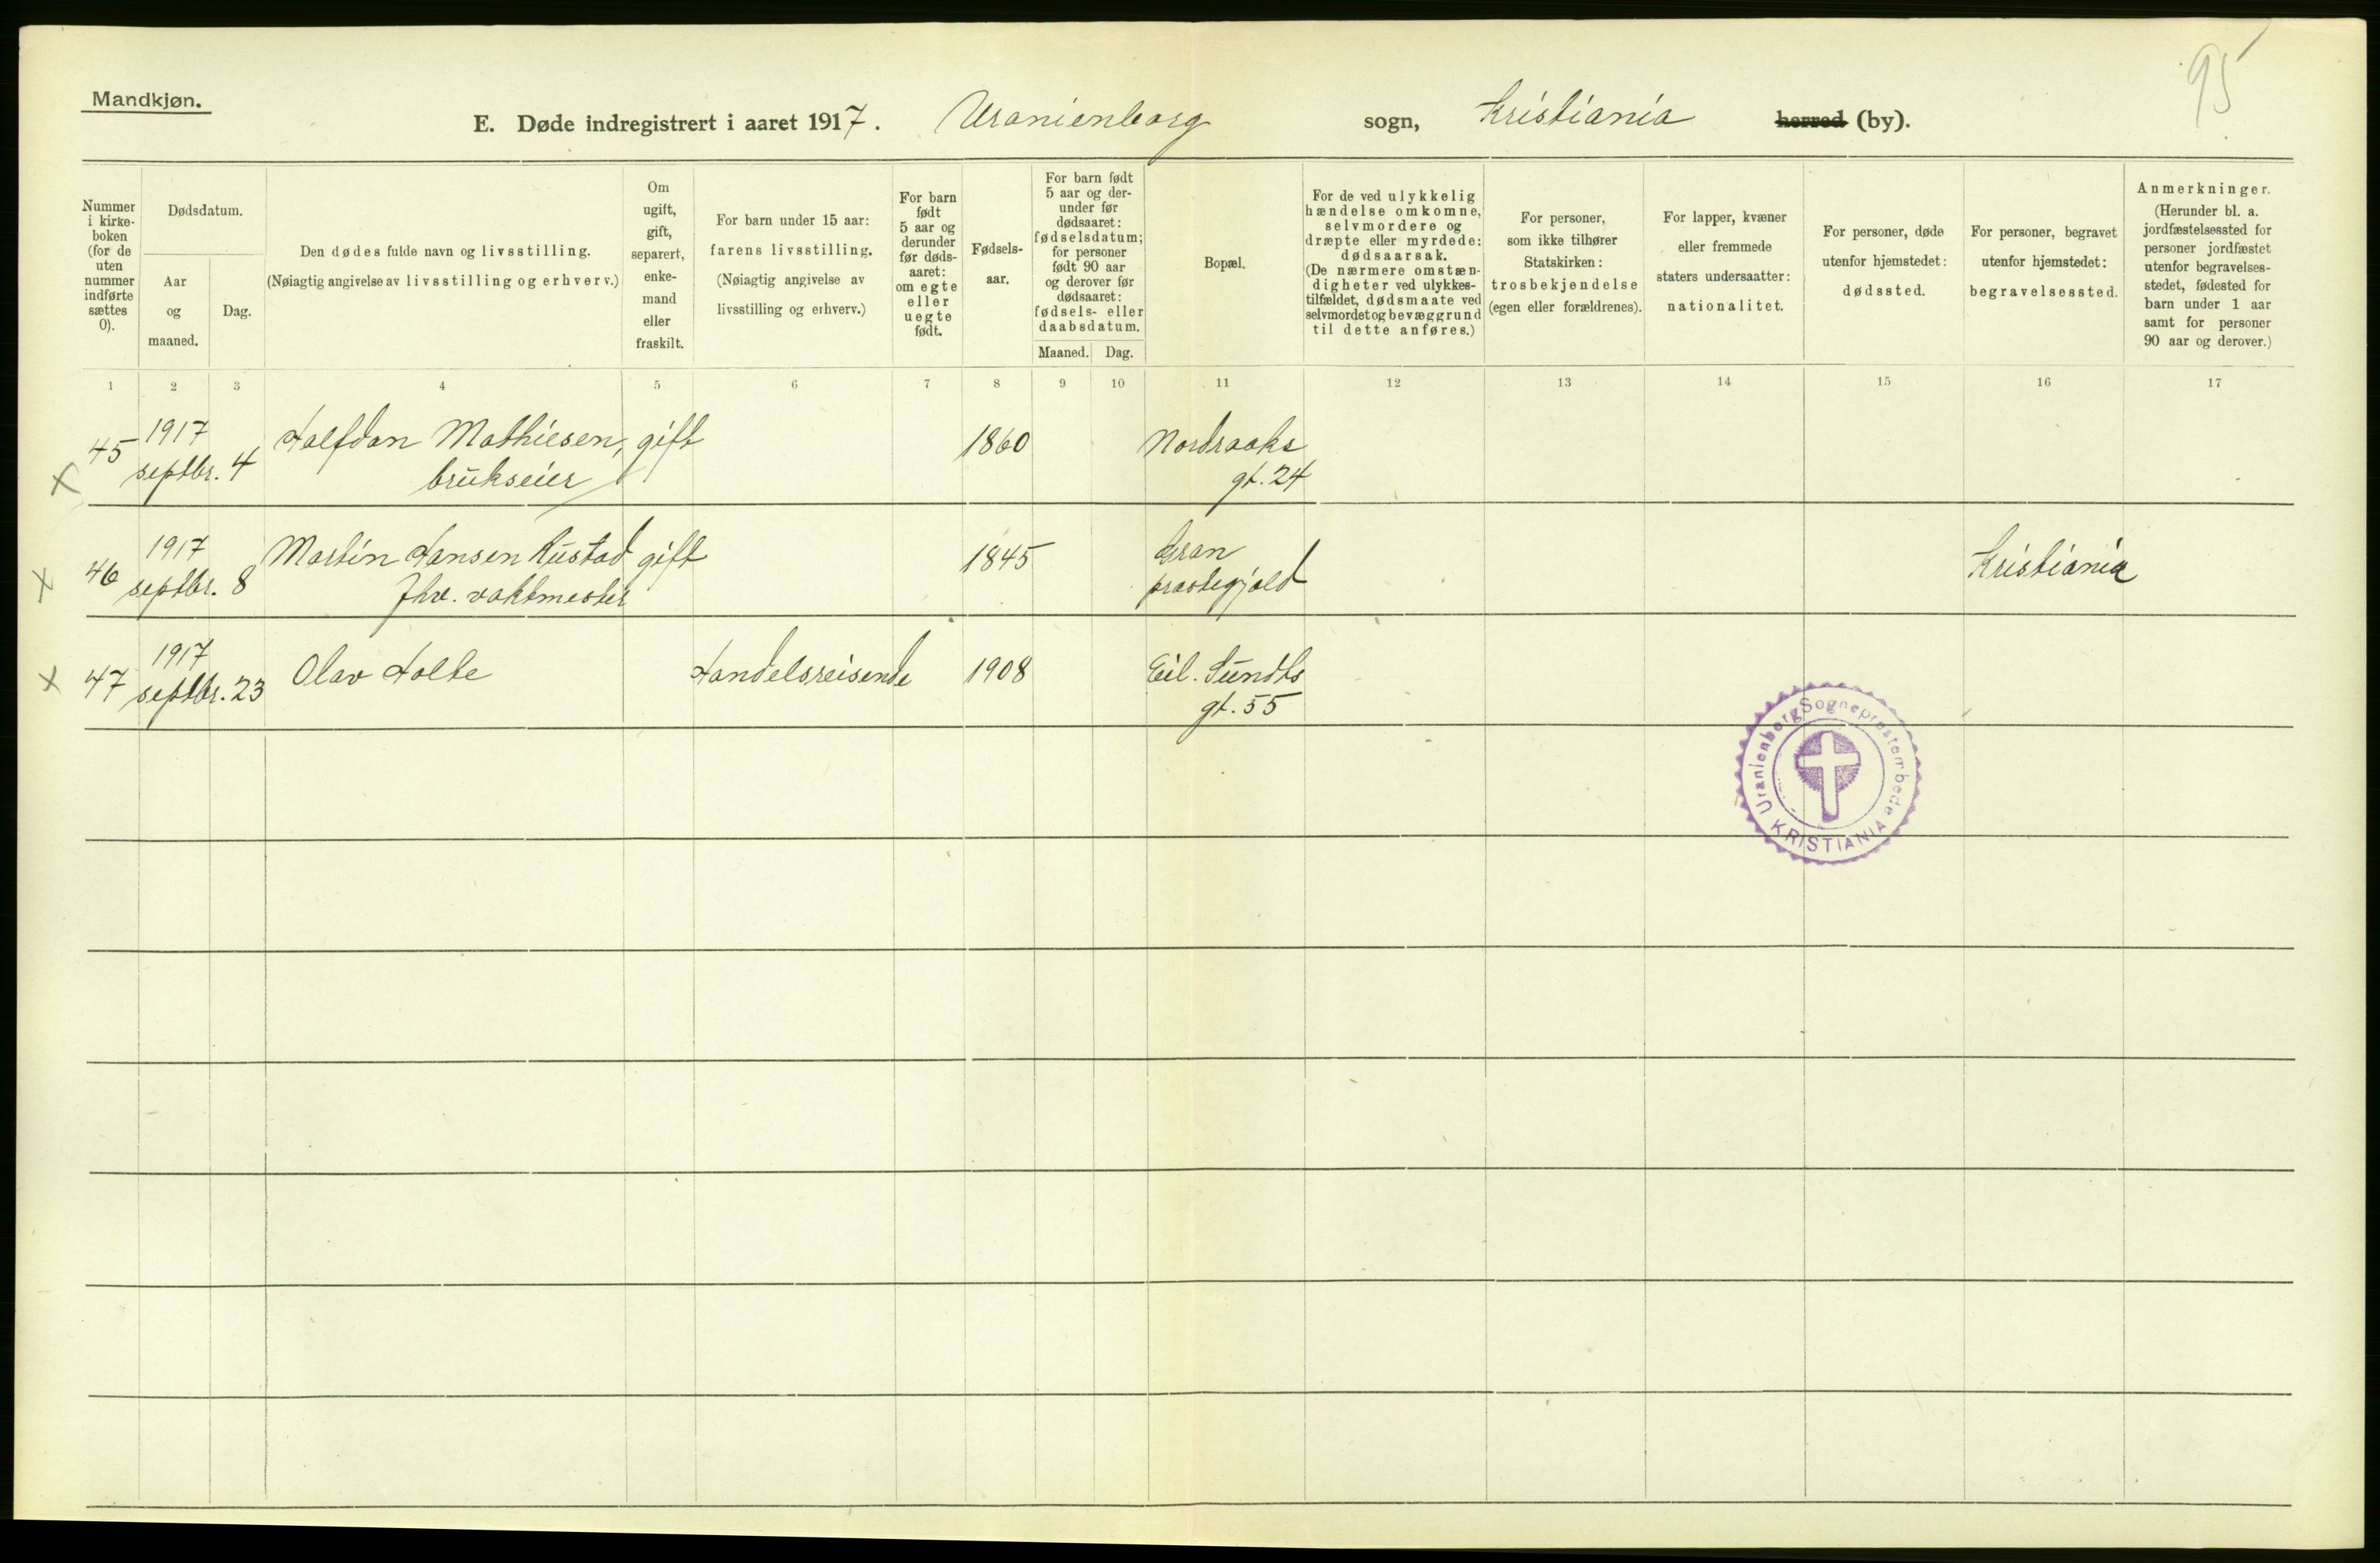 95
Mandkjøn.
E. Døde indregistrert i aaret 1917. Uranienborg sogn, Kristiania herred (by).
Nummer
i kirke-
boken
(for de
uten
nummer
indførte
sættes
0).
Dødsdatum.
Aar
og
maaned.
Dag.
Den dødes fulde navn og livsstilling.
(Nøiagtig angivelse av livsstilling og erhverv.)
Om
ugift,
gift,
separert,
enke-
mand
eller
fraskilt.
For barn under 15 aar:
farens livsstilling.
(Nøiagtig angivelse av
livsstilling og erhverv.)
For barn
født
5 aar og
derunder
før døds-
aaret:
om egte
eller
uegte
født.
Fødsels-
aar.
For barn født
5 aar og der-
under før
dødsaaret:
fødselsdatum;
for personer
født 90 aar
og derover før
dødsaaret:
fødsels- eller
daabsdatum.
Maaned. Dag.
Bopæl.
For de ved ulykkelig
hændelse omkomne,
selvmordere og
dræpte eller myrdede:
dødsaarsak.
(De nærmere omstæn-
digheter ved ulykkes-
tilfældet, dødsmaate ved
selvmordet og bevæggrund
til dette anføres.)
For personer,
som ikke tilhører
Statskirken:
trosbekjendelse
(egen eller forældrenes).
For lapper, kvæner
eller fremmede
staters undersaatter:
nationalitet.
For personer, døde
utenfor hjemstedet:
dødssted.
For personer, begravet
utenfor hjemstedet:
begravelsessted.
Anmerkninger.
(Herunder bl. a.
jordfæstelsessted for
personer jordfæstet
utenfor begravelses-
stedet, fødested for
barn under 1 aar
samt for personer
90 aar og derover.)
1 2 3 4 5 6 7 8 9 10 11 12 13 14 15 16 17
x 45 1917 Halfdan Mathiesen, gift 1860 Nordraaks
septbr. 4 brukseier gt. 24
x 46 1917 Martin Hansen Rustad gift 1845 Gran Kristiania
septbr. 8 fhv. vaktmester prestegjeld
x 47 1917 Olav Holte Handelsreisende 1908 Eil. Sundts
septbr. 23 gt. 55
Uranienborg Sogneprestembede
KRISTIANIA